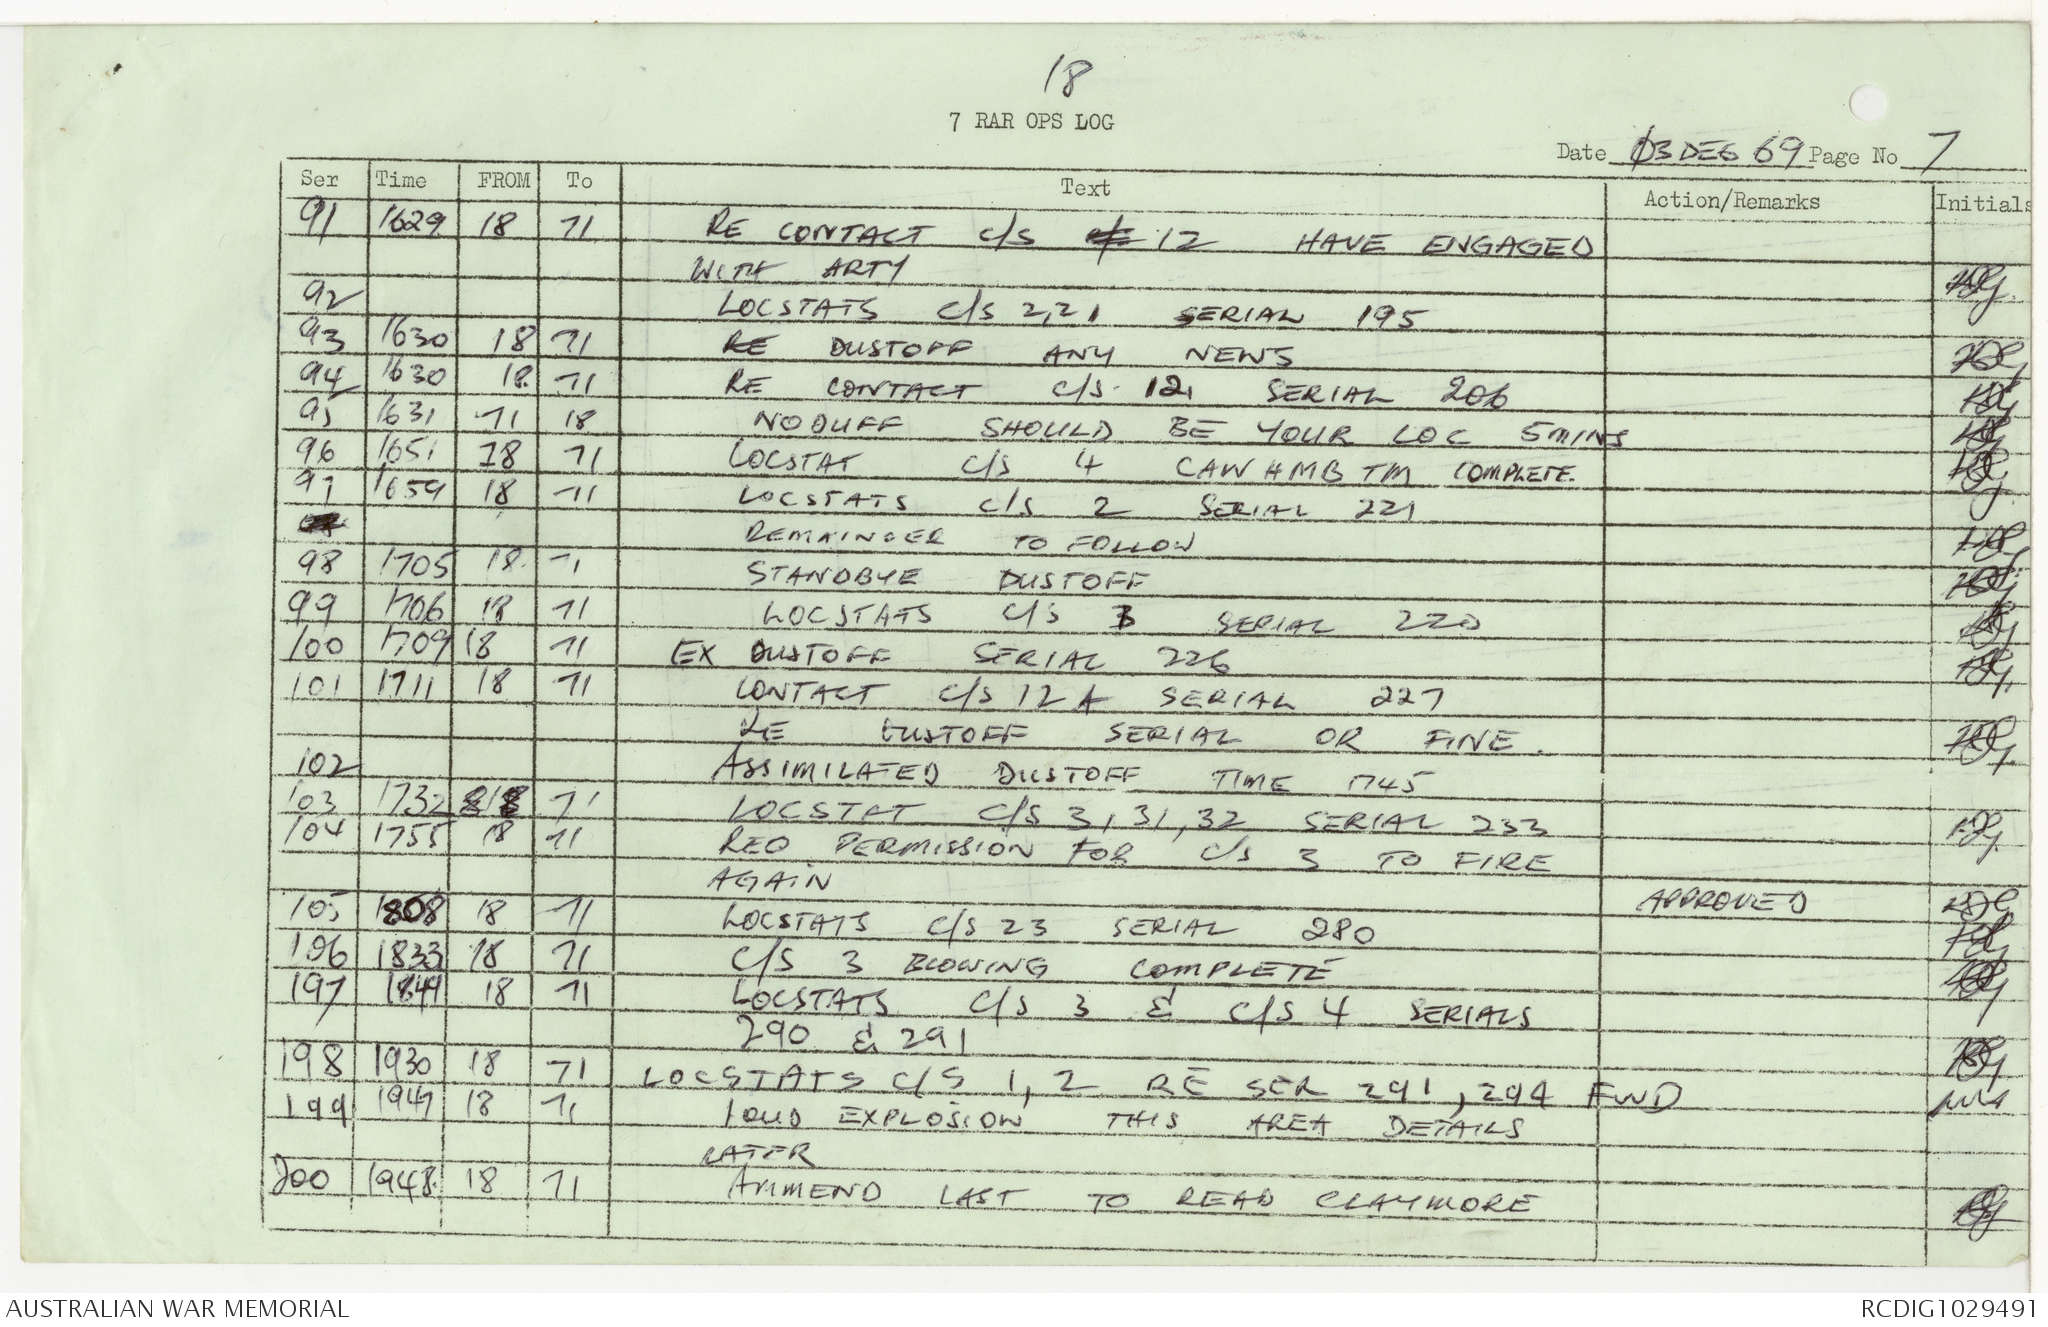 18
7 RAR OPS LOG
Date 03 DEC 69 Page No 7
Ser Time FROM To Text Action/Remarks Initials
91 1629 18 71 RE CONTACT C/S 12 HAVE ENGAGED
WITH ARTY
92 LOCSTATS C/S 2,21 SERIAL 195
93 1630 18 71 RE DUSTOFF ANY NEWS
94 1630 18 71 RE CONTACT C/S 12 SERIAL 206
95 1631 71 18 NODUFF SHOULD BE YOUR LOC 5MINS
96 1651 18 71 LOCSTAT C/S 4 CAW HMB TM COMPLETE.
97 1659 18 71 LOCSTATS C/S 2 SERIAL 221
REMAINDER TO FOLLOW
98 1705 18 71 STANDBYE DUSTOFF
99 1706 18 71 LOCSTATS C/S 3 SERIAL 220
100 1709 18 71 EX DUSTOFF SERIAL 226
101 1711 18 71 CONTACT C/S 12A SERIAL 227
RE DUSTOFF SERIAL OR FINE.
102 ASSIMILATED DUSTOFF TIME 1745
103 1732 18 71 LOCSTAT C/S 3, 31, 32 SERIAL 233
104 1755 18 71 REQ PERMISSION FOR C/S 3 TO FIRE
AGAIN APPROVED
105 1808 18 71 LOCSTATS C/S 23 SERIAL 280
196 1833 18 71 C/S 3 BLOWING COMPLETE
197 1849 18 71 LOCSTATS C/S 3 & C/S 4 SERIALS
290 & 291
198 1930 18 71 LOCSTATS C/S 1, 2 RE SER 291, 294 FWD
199 1947 18 71 LOUD EXPLOSION THIS AREA DETAILS
LATER
200 1948 18 71 AMMEND LAST TO READ CLAYMORE
AUSTRALIAN WAR MEMORIAL RCDIG1029491